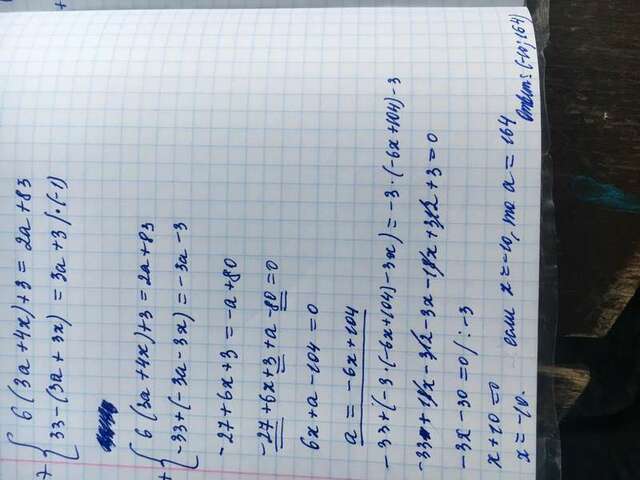 { 6(3a+4x)+3=2a+83
33-(3a+3x)=3a+3 / ·(-1)
+ { 6(3a+4x)+3=2a+83
-33+(-3a-3x)=-3a-3
-27+6x+3=-a+80
-27+6x+3+a-80=0
6x+a-104=0
a=-6x+104
-33+(-3·(-6x+104)-3x)=-3·(-6x+104)-3
-33+18x-312-3x-18x+312+3=0
-3x-30=0 /:-3
x+10=0
x=-10.
если x=-10, то a=164
Ответ: (-10;164)